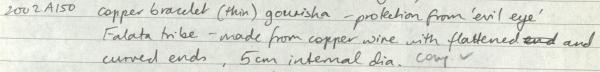 2002 A150 copper bracelet (thin) gourisha - protection from 'evil eye'
Falata tribe - made from copper wire with flattened end and
curved ends, 5cm internal dia. Copy ✓